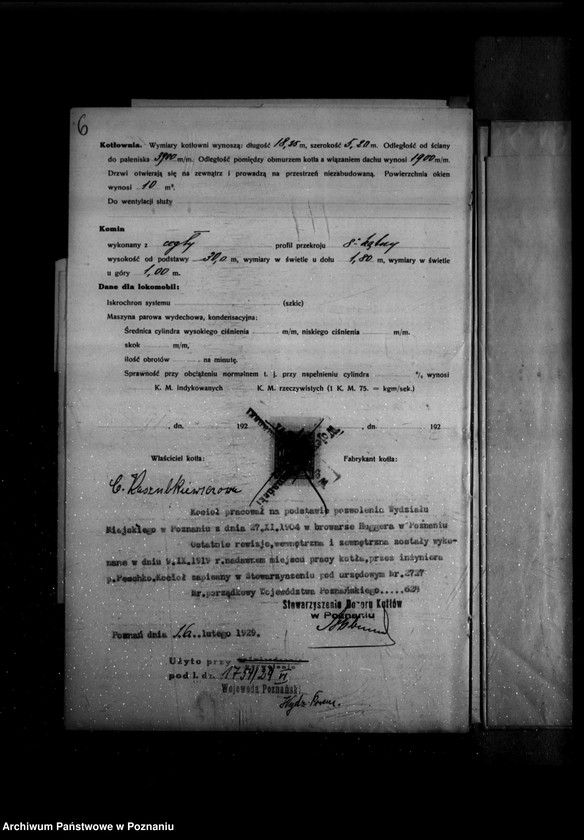 6
Kotłownia. Wymiary kotłowni wynoszą: długość 18,35 m, szerokość 5,20 m. Odległość od ściany
do paleniska 3900 m/m. Odległość pomiędzy obmurzem kotła a wiązaniem dachu wynosi 1900 m/m.
Drzwi otwierają się na zewnątrz i prowadzą na przestrzeń niezabudowaną. Powierzchnia okien
wynosi 10 m².
Do wentylacji służy
Komin
wykonany z cegły profil przekroju 8-kątny
wysokość od podstawy 30,0 m, wymiary w świetle u dołu 1,80 m, wymiary w świetle
u góry 1,00 m.
Dane dla lokomobil:
Iskrochron systemu (szkic)
Maszyna parowa wydechowa, kondensacyjna:
Średnica cylindra wysokiego ciśnienia m/m, niskiego ciśnienia m/m.
skok m/m,
ilość obrotów na minutę.
Sprawność przy obciążeniu normalnem t. j. przy napełnieniu cylindra %, wynosi
K. M. indykowanych K. M. rzeczywistych (1 K. M. 75. = kgm/sek.)
, dn. 192 , dn. 192
Właściciel kotła: Fabrykant kotła:
Kocioł pracował na podstawie pozwolenia Wydziału
Miejskiego w Poznaniu z dnia 27.XI.1904 w browarze Huggera w Poznaniu
Ostatnie rewizje,wewnętrzna i zewnętrzna zostały wyko-
nane w dniu 9.IX.1919 r.nadawnem miejscu pracy kotła,przez inżyniera
p.Peschko.Kocioł zapisany w Stowarzyszeniu pod urzędowym Nr.2727
Nr.porządkowy Województwa Poznańskiego.....629
Stowarzyszenie Dozoru Kotłów
w Poznaniu
Poznań dnia 16..lutego 1929.
Użyto przy
pod l. dz. 1759/29 VI
Wojewoda Poznański
Archiwum Państwowe w Poznaniu